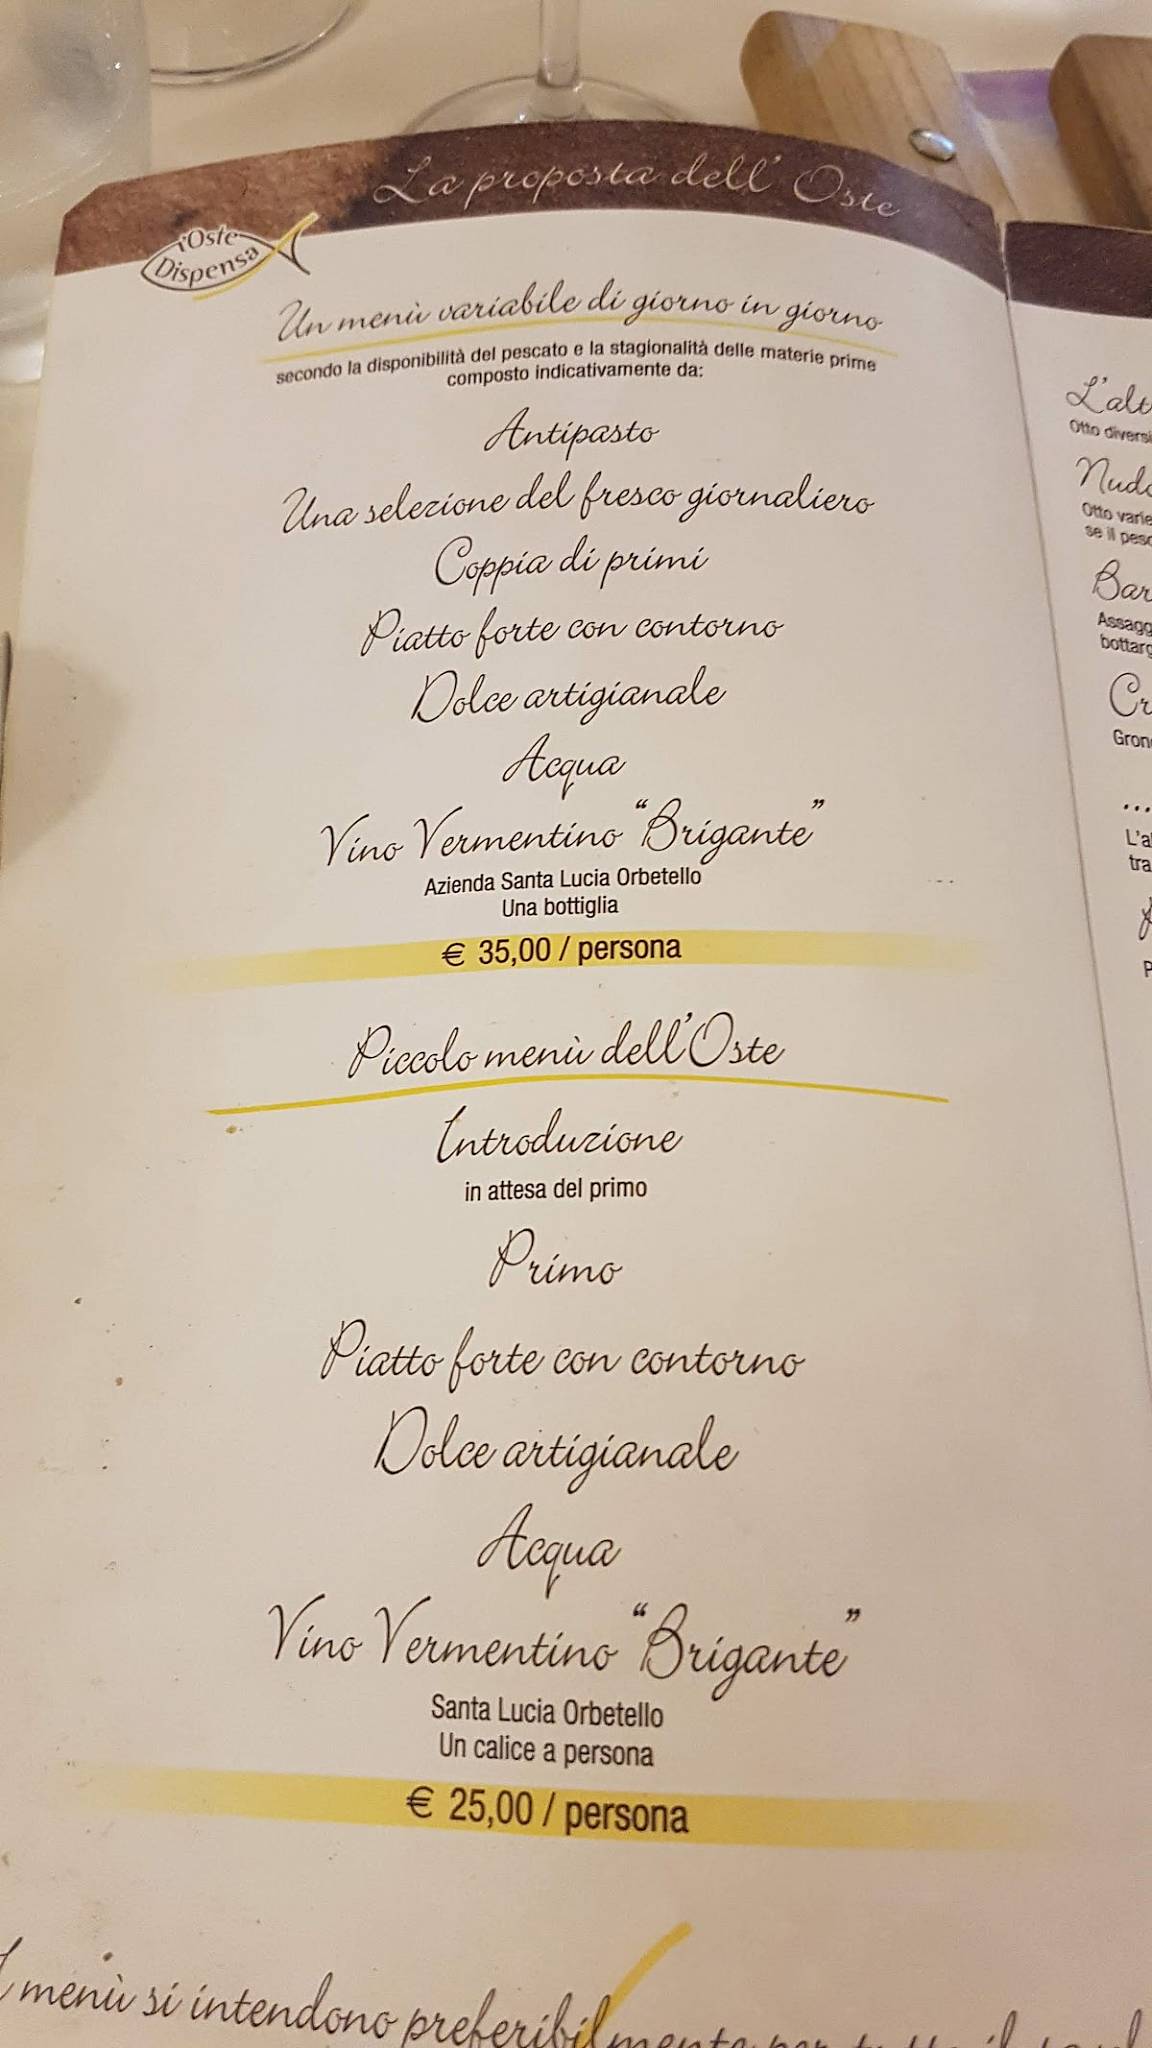 La proposta dell' Oste
l'Oste
Dispensa
Un menù variabile di giorno in giorno
secondo la disponibilità del pescato e la stagionalità delle materie prime
composto indicativamente da:
Antipasto
Una selezione del fresco giornaliero
Coppia di primi
Piatto forte con contorno
Dolce artigianale
Acqua
Vino Vermentino "Brigante"
Azienda Santa Lucia Orbetello
Una bottiglia
€ 35,00 / persona
Piccolo menù dell'Oste
Introduzione
in attesa del primo
Primo
Piatto forte con contorno
Dolce artigianale
Acqua
Vino Vermentino "Brigante"
Santa Lucia Orbetello
Un calice a persona
€ 25,00 / persona
menù si intendono preferibilmente per tutto il
L'alt
Otto diversi
Nud
Otto varie
se il pesc
Bar
Assagg
bottarg
Cr
Gron
...
L'a
tra
P